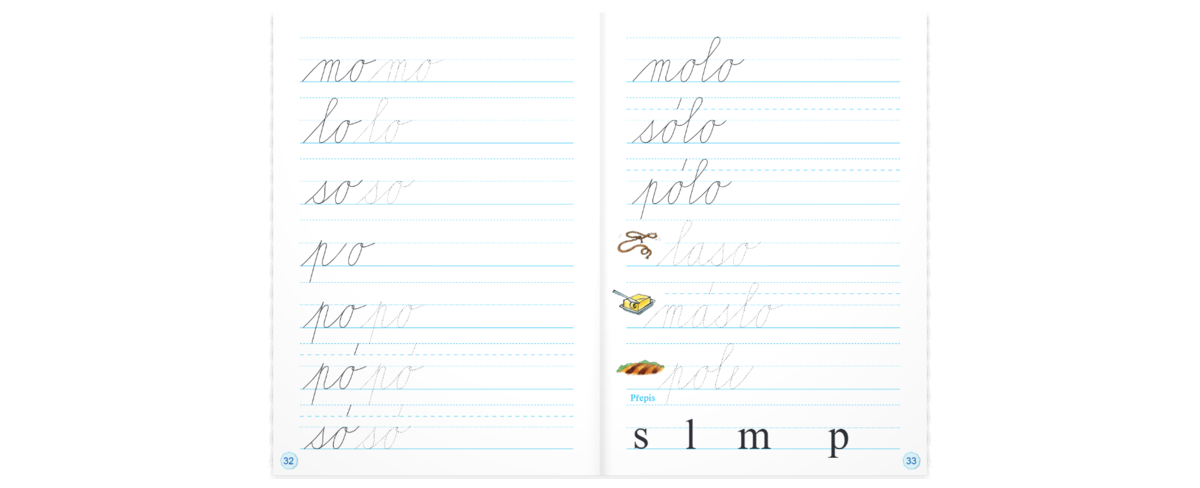 mo mo
lo lo
so so
p o
po po
pó pó
só só
32
molo
sólo
pólo
laso
máslo
pole
Přepis
s l m p
33